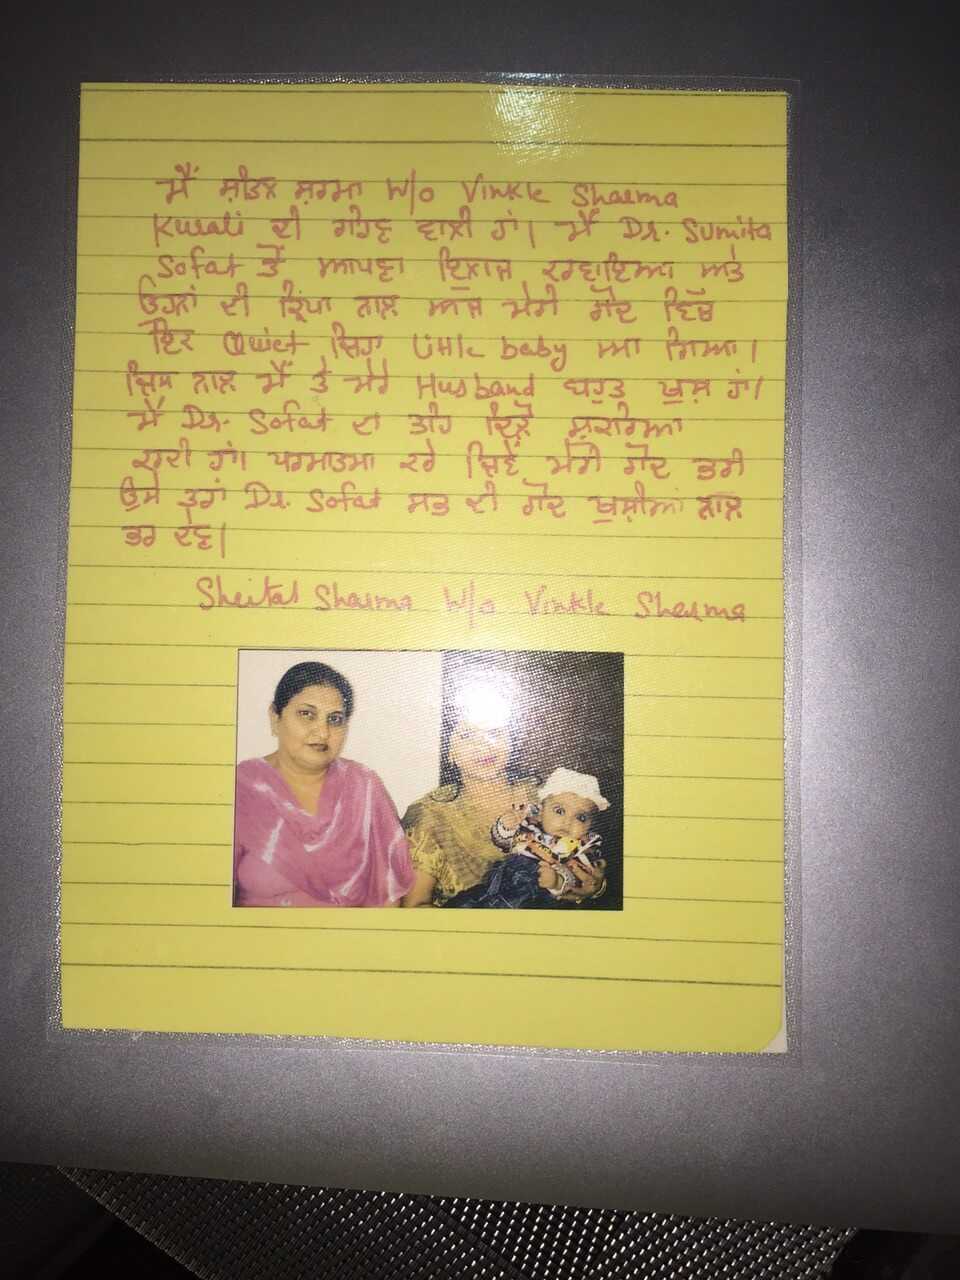 ਮੈਂ ਸ਼ੀਤਲ ਸ਼ਰਮਾ W/o Vinkle Sharma
Kurali ਦੀ ਰਹਿਣ ਵਾਲੀ ਹਾਂ। ਮੈਂ Dr. Sumita
Sofat ਤੋਂ ਆਪਣਾ ਇਲਾਜ ਕਰਵਾਇਆ ਅਤੇ
ਉਹਨਾਂ ਦੀ ਕ੍ਰਿਪਾ ਨਾਲ ਅੱਜ ਮੇਰੀ ਗੋਦ ਵਿੱਚ
ਇਕ Quiet ਜਿਹਾ little baby ਆ ਗਿਆ।
ਜਿਸ ਨਾਲ ਮੈਂ ਤੇ ਮੇਰੇ Husband ਬਹੁਤ ਖੁਸ਼ ਹਾਂ।
ਮੈਂ Dr. Sofat ਦਾ ਤਹਿ ਦਿਲੋਂ ਸ਼ੁਕਰੀਆ
ਕਰਦੀ ਹਾਂ। ਪਰਮਾਤਮਾ ਕਰੇ ਜਿਵੇਂ ਮੇਰੀ ਗੋਦ ਭਰੀ
ਉਸੇ ਤਰਾਂ Dr. Sofat ਸਭ ਦੀ ਗੋਦ ਖੁਸ਼ੀਆਂ ਨਾਲ
ਭਰ ਦੇਣ।
Sheital Sharma W/o Vinkle Sharma